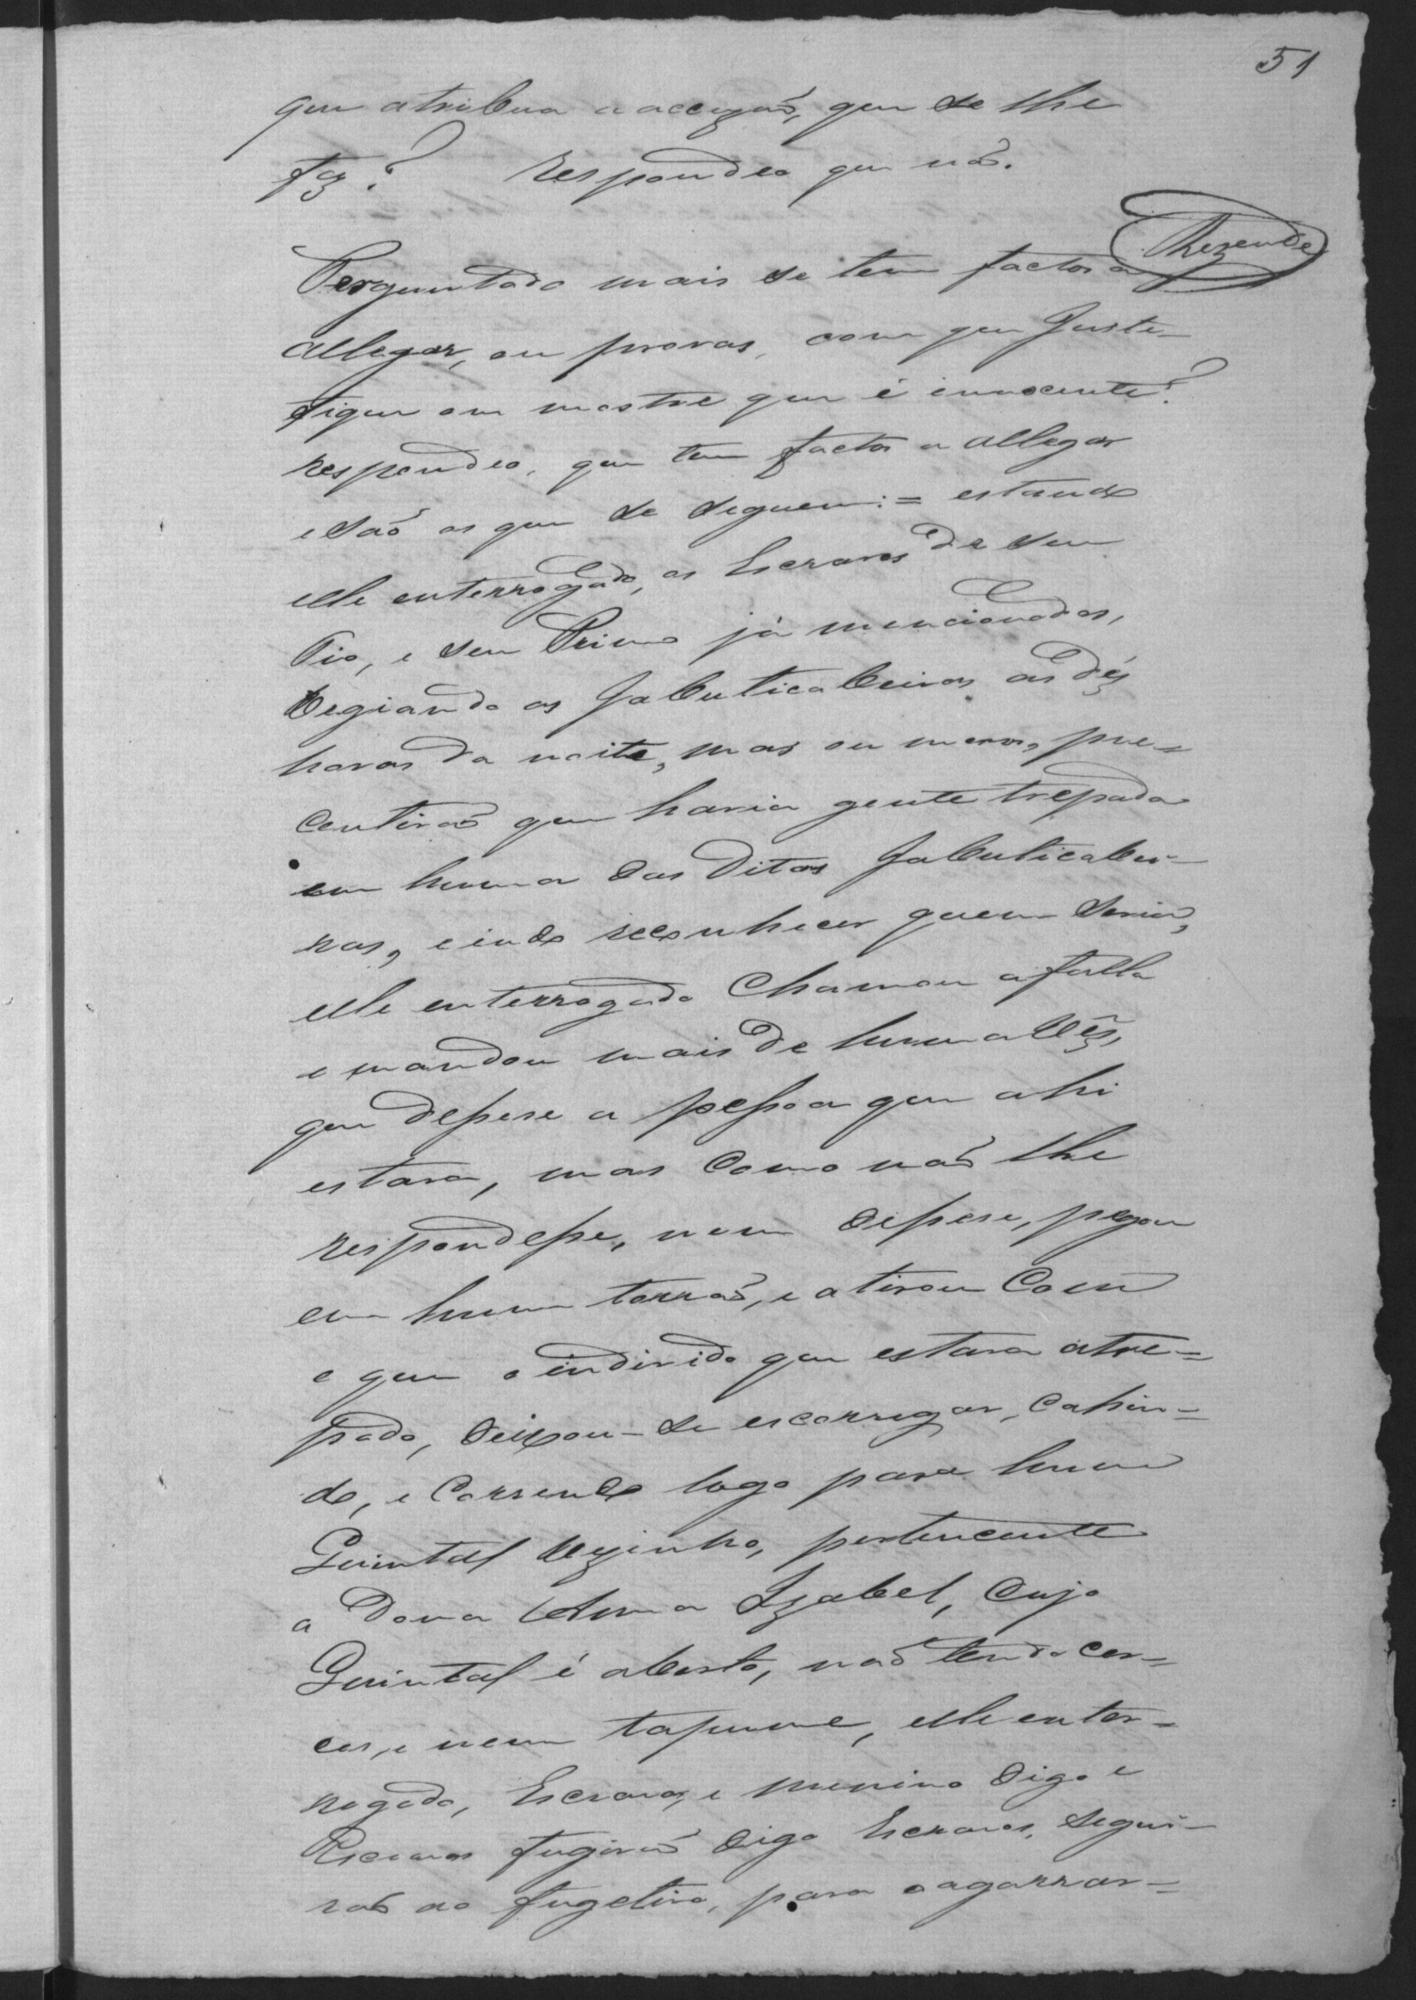 51
que atribua a accuzaõ, que se lhe
fez? Respondeo que naõ.
Rezende
Perguntado mais se tem factos a
allegar, ou provas, com que Juste-
fique ou mostre que é ennocente?
respondeo, que tem factos a allegar
e saõ os que se seguem:= estando
elle enterrogado, os Escravos de seu
Tio, e seu Primo já mencionados,
begiando as Jabuticabeiras as dés
horas da noite, mas ou menos, pre-
centiraõ que havia gente trepada
em huma das ditas Jabuticabei-
ras, e indo reconhecer quem seria,
elle enterrogado Chamou a falla
e mandou mais de huma vês,
que desese a pessoa que ahi
estava, mas como naõ lhe
respondesse, nem desese, pegou
em hum torraõ, e atirou com
o que o individo que estava atre-
pado, deixou-se escorregar, cahin-
do, e correndo logo para hum
Quintal vezinho, pertencente
a Dona Anna Izabel, cujo
Quintal é aberto, naõ tendo cer-
cas, e nem tapume, elle enter-
rogado, Escravos, e menino digo e
Escravos fugiraõ digo Escravos, segui-
raõ ao fugetivo, para o agarrar-